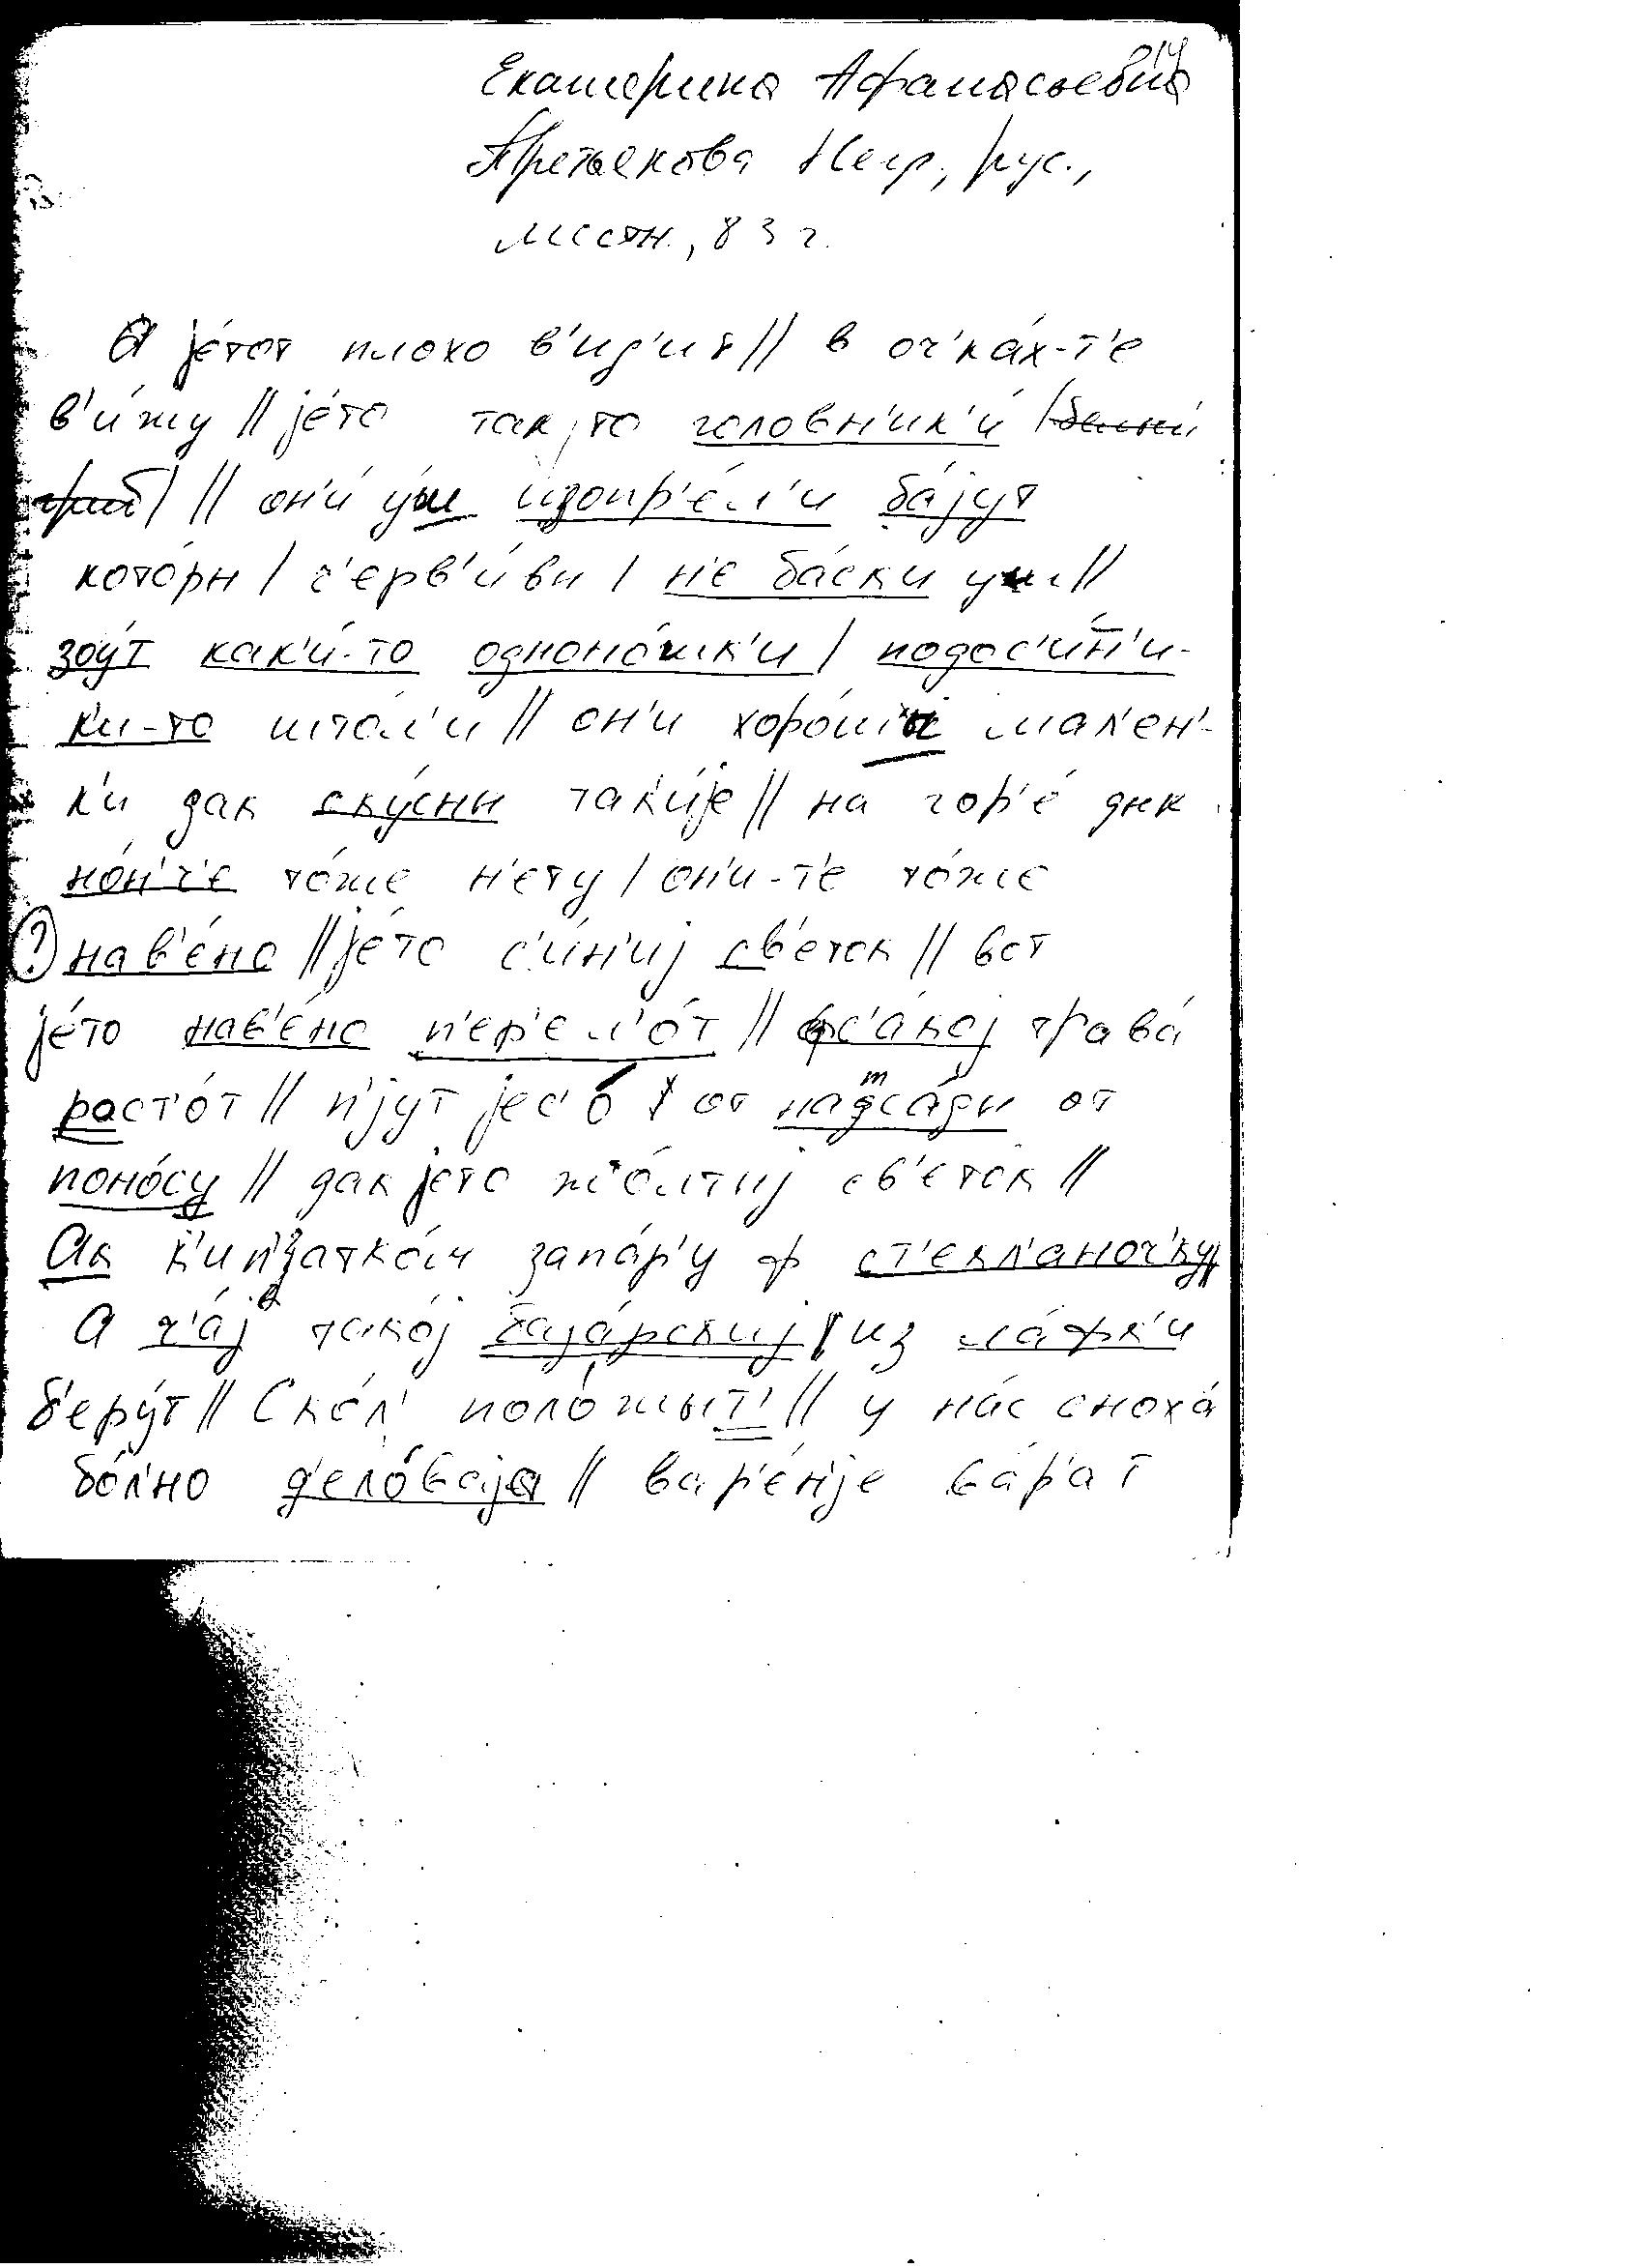 014
Екатерина Афанасьевна
Третьякова Негр, рус.,
местн., 83 г.
А jе́тот плохо в'ид'ит // в оч'ка́х-т'е
в'и́жу // jе́то так то головн'ик'и́ /белый
гриб/ // он'и́ у́жы изопр'е́л'и ба́jут
кото́ры / ч'ерв'и́вы / н'е ба́ски ужы //
зоу́т как'и́-то одноно́шк'и / подос'и́н'и-
к'и-то што́л'и // он'и хоро́шы мал'ен'-
к'и дак скусны так'и́jе // на гор'е́ дык
но́н'ч'е то́же н'ету / он'и-т'е то́же
? нав'е́но // jе́то с'и́н'иj св'еток // вот
jе́то нав'е́но п'ер'ел'о́т // фс'а́коj трава́
раст'о́т // п'jут jес' от надса́ды от
т
поно́су // дак jето жо́лтыj св'еток //
Ак к'ип'атко́м запа́р'у ф ст'екл'аноч'ку //
А ч'аj тако́j база́рскиj / из ла́фк'и
б'еру́т // Ско́л' поло́жыт' // у на́с сноха́
бо́л'но д'елова́jа // вар'е́н'jе ва́р'ат